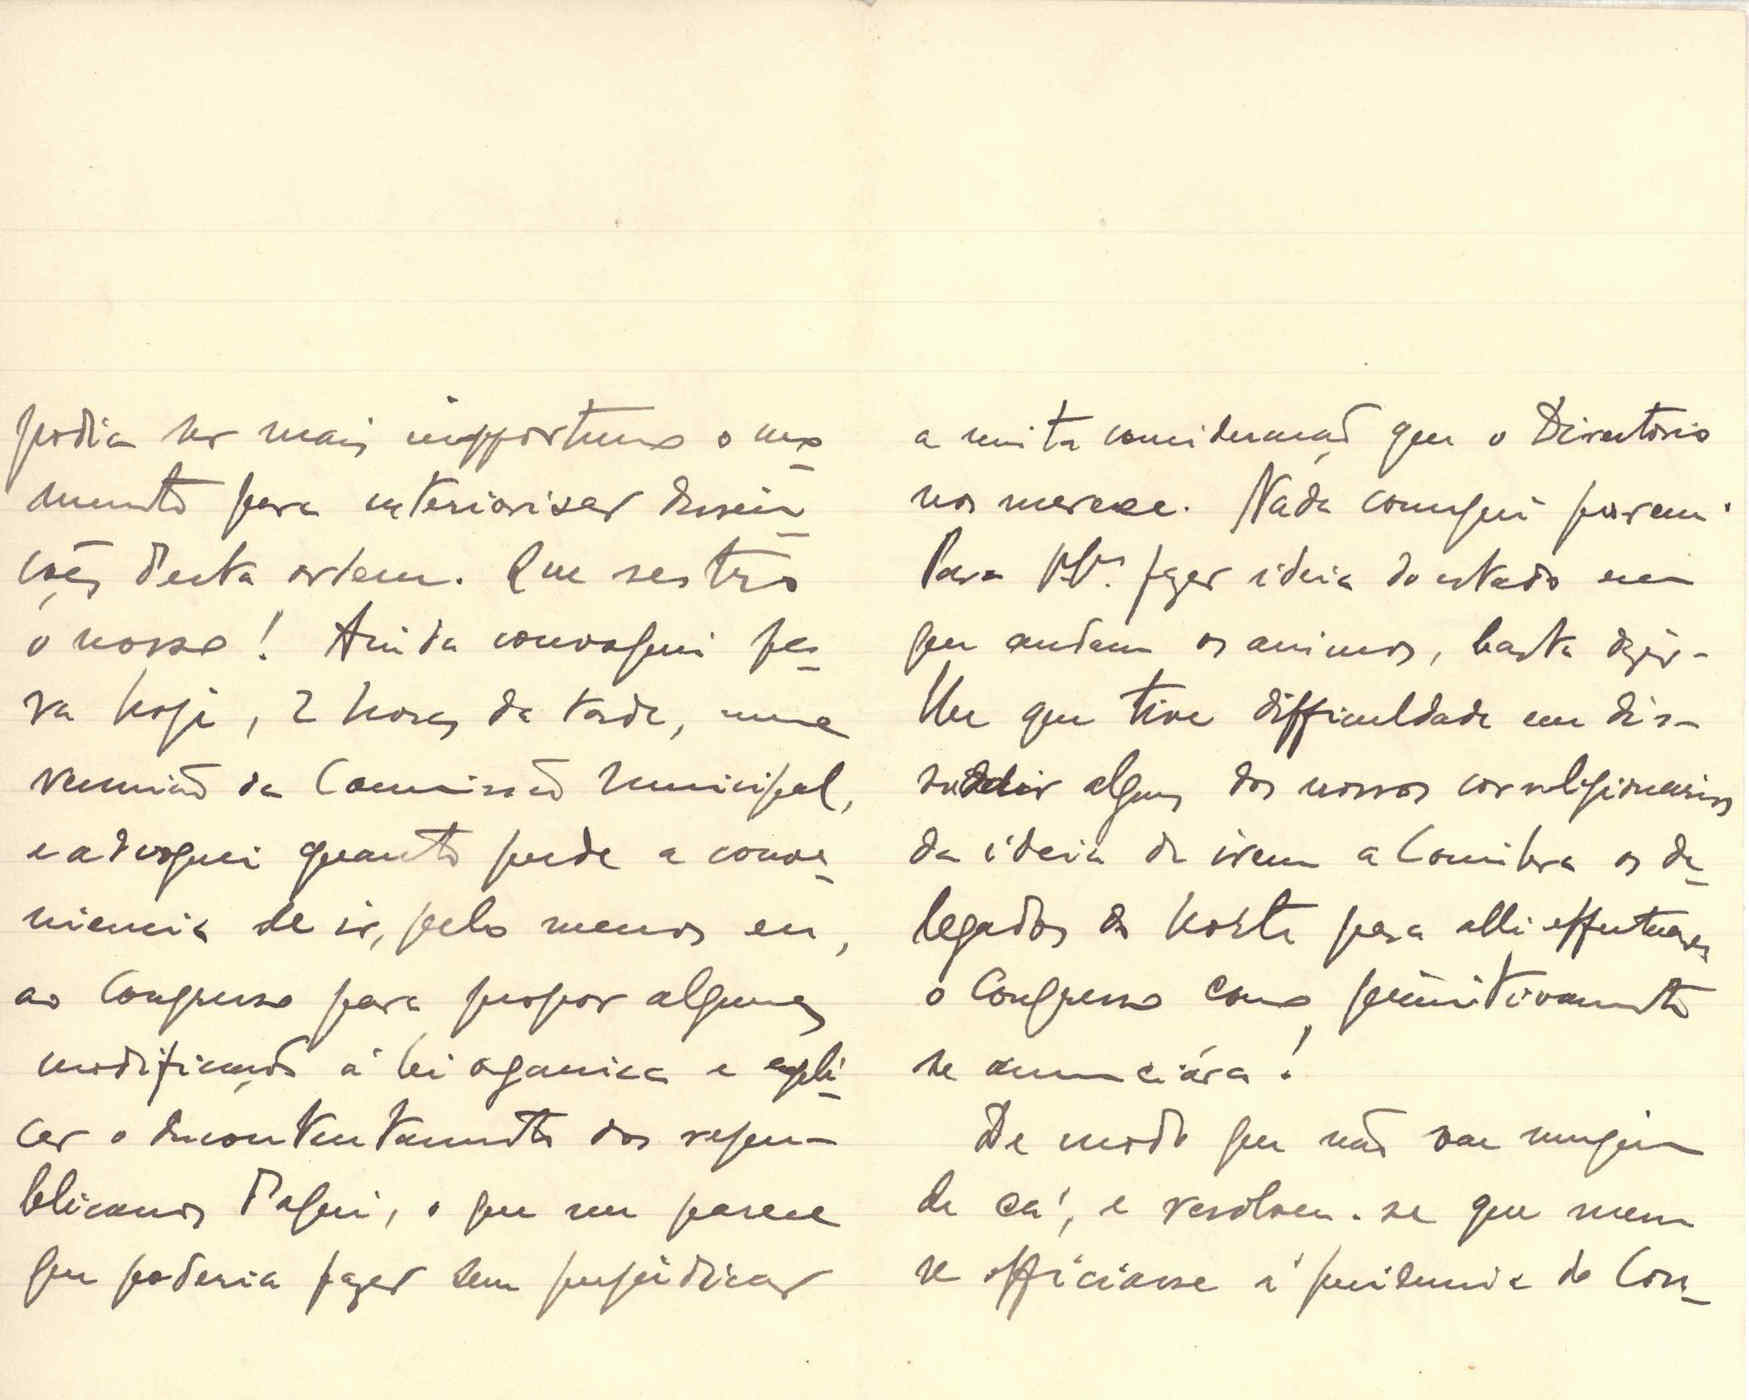 podia ser mais inopportuno o mo-
mento para exteriorisar dissen-
ções desta ordem. Que sestro
o nosso! Ainda convoquei pa-
ra hoje, 2 horas da tarde, uma
reunião da Commissão Municipal,
e advoguei quanto pude a conve-
niencia de ir, pelo menos eu,
ao Congresso para propor algumas
modificações á lei organica e expli-
car o descontentamento dos repu-
blicanos d'aqui, o que me parece
que poderia fazer sem prejudicar
a muita consideração que o Directorio
nos merece. Nada consegui porem.
Para fazer ideia do estado em
que andam os animos, basta dizer-
lhe que tive difficuldade em dis-
suadir alguns dos nossos correligionarios
da ideia de irem a Coimbra os de-
legados do Norte para alli effectuarem
o Congresso como primitivamente
se annunciára!
De modo que não vae ninguem
de cá, e resolveu-se que nem
se officiasse á presidencia do Con-